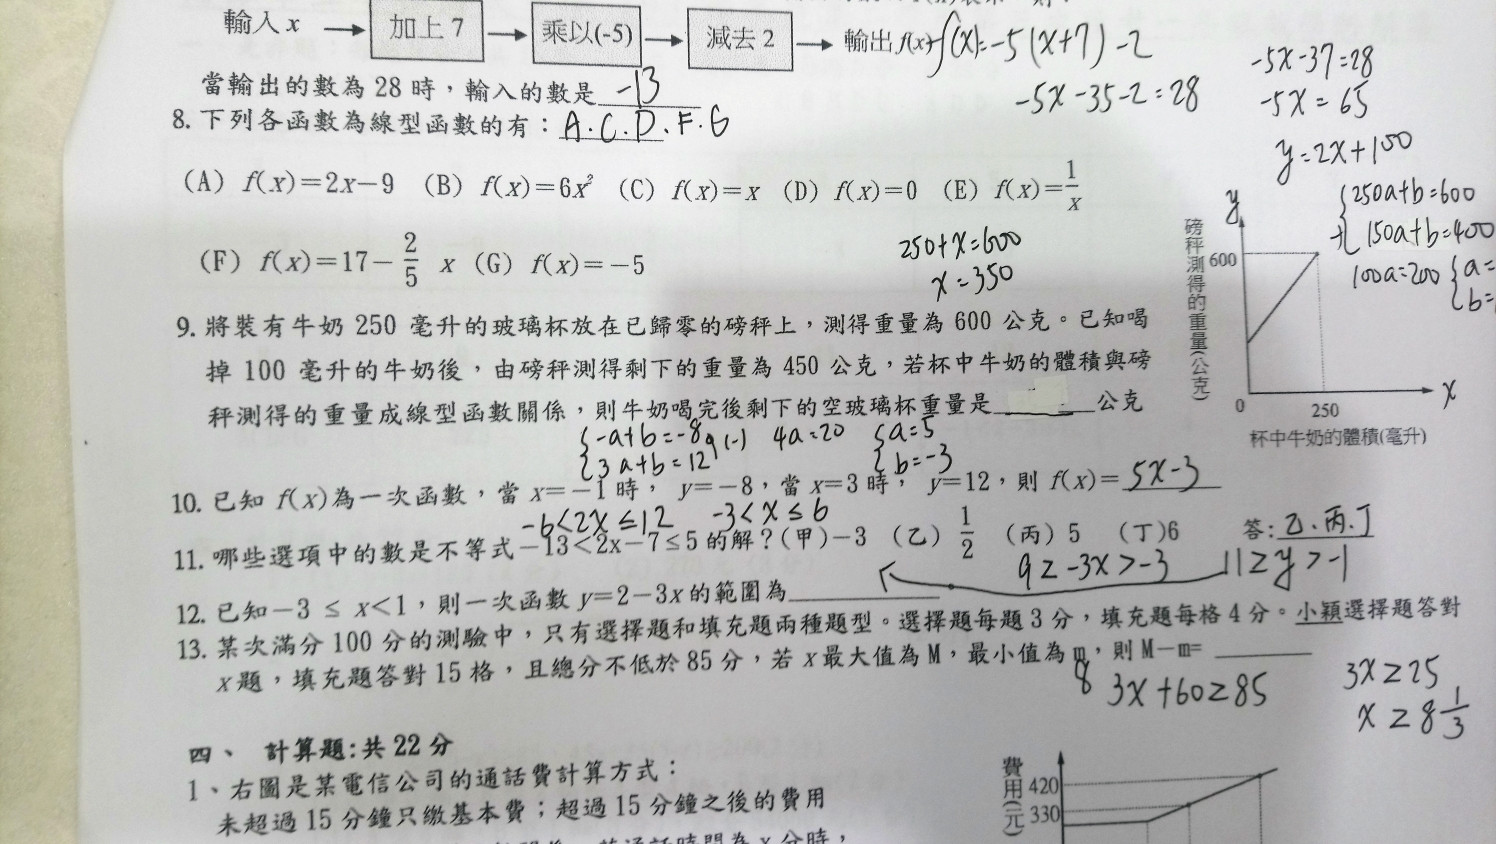 輸入 x → 加上 7 → 乘以(-5) → 減去 2 → 輸出 f(x) f(x)=-5(x+7)-2
-5x-35-2=28
-5x-37=28
-5x=65
當輸出的數為 28 時，輸入的數是 -13
8. 下列各函數為線型函數的有：A.C.D.F.G
(A) f(x)=2x-9 (B) f(x)=6x² (C) f(x)=x (D) f(x)=0 (E) f(x)=1/x
(F) f(x)=17-2/5 x (G) f(x)=-5
250+x=600
x=350
y=2x+100
250a+b=600
150a+b=400
100a=200 a=
b=
y
磅秤測得的重量(公克)
600
0 250 x
杯中牛奶的體積(毫升)
9. 將裝有牛奶 250 毫升的玻璃杯放在已歸零的磅秤上，測得重量為 600 公克。已知喝
掉 100 毫升的牛奶後，由磅秤測得剩下的重量為 450 公克，若杯中牛奶的體積與磅
秤測得的重量成線型函數關係，則牛奶喝完後剩下的空玻璃杯重量是______公克
-a+b=-8 (-) 4a=20 a=5
3a+b=12 b=-3
10. 已知 f(x)為一次函數，當 x=-1 時， y=-8，當 x=3 時， y=12，則 f(x)=5x-3
-6<2x≤12 -3<x≤6
11. 哪些選項中的數是不等式-13<2x-7≤5 的解？(甲)-3 (乙) 1/2 (丙) 5 (丁)6 答:乙.丙.丁
9≥-3x>-3 11≥y>-1
12. 已知-3 ≤ x<1，則一次函數 y=2-3x 的範圍為__________
13. 某次滿分 100 分的測驗中，只有選擇題和填充題兩種題型。選擇題每題 3 分，填充題每格 4 分。小穎選擇題答對
x 題，填充題答對 15 格，且總分不低於 85 分，若 x 最大值為 M，最小值為 m，則 M-m= ______
8 3x+60≥85
3x≥25
x≥8 1/3
四、 計算題:共 22 分
1、右圖是某電信公司的通話費計算方式：
未超過 15 分鐘只繳基本費；超過 15 分鐘之後的費用
費用(元)
420
330